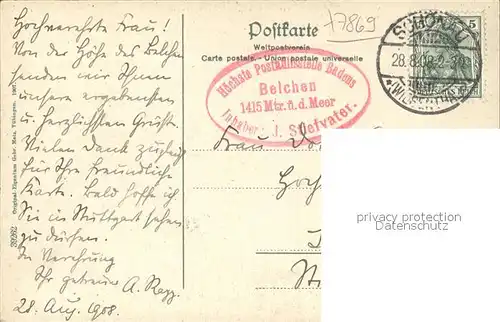 Hochverehrte Frau!
Von der Höhe des Belchen
senden wir Ihnen
unsere ergebensten
u. herzlichsten Grüße.
Vielen Dank zugleich
für Ihre freundliche
Karte. Bald hoffe ich
Sie in Stuttgart sehen
zu dürfen.
In Verehrung
Ihr getreuer A. Rapp.
28. Aug. 1908.
39262 Original-Eigentum Gebr. Metz, Tübingen.
Postkarte
Weltpostverein
Carte postale. - Union postale universelle
17869
Höchste Posthilfstelle Badens
Belchen
1415 Mtr. ü. d. Meer
Inhaber: J. Stiefvater.
SCHÖNAU
28.8.08. 2-3N
(WIESENTHAL)
5
Frau
Hoch
privacy protection
Datenschutz